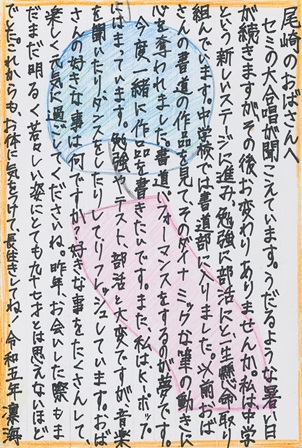 尾崎のおばさんへ
セミの大合唱が聞こえています。うだるような暑い日
が続きますが、その後お変わりありませんか。私は中学
という新しいステージに進み、勉強に部活にと一生懸命取り
組んでいます。中学校では書道部に入りました。以前おば
さんの書道の作品を見て、そのダイナミックな筆の動きに
心を奪われました。書道パフォーマンスをするのが夢です。
今度一緒に作品を書きたいです。また、私はK-ポップ
にはまっています。勉強やテスト、部活と大変ですが、音楽
を聞いたり、ダンスをしたりしてリフレッシュしています。おば
さんの好きな事は何ですか?好きな事をたくさんして、
楽しく元気に過ごしてくださいね。昨年、お会いした際もま
だまだ明るく若々しい姿にとても九十才とは思えないほど
でした。これからも、お体に気をつけて、長生きしてね。令和五年 凛海